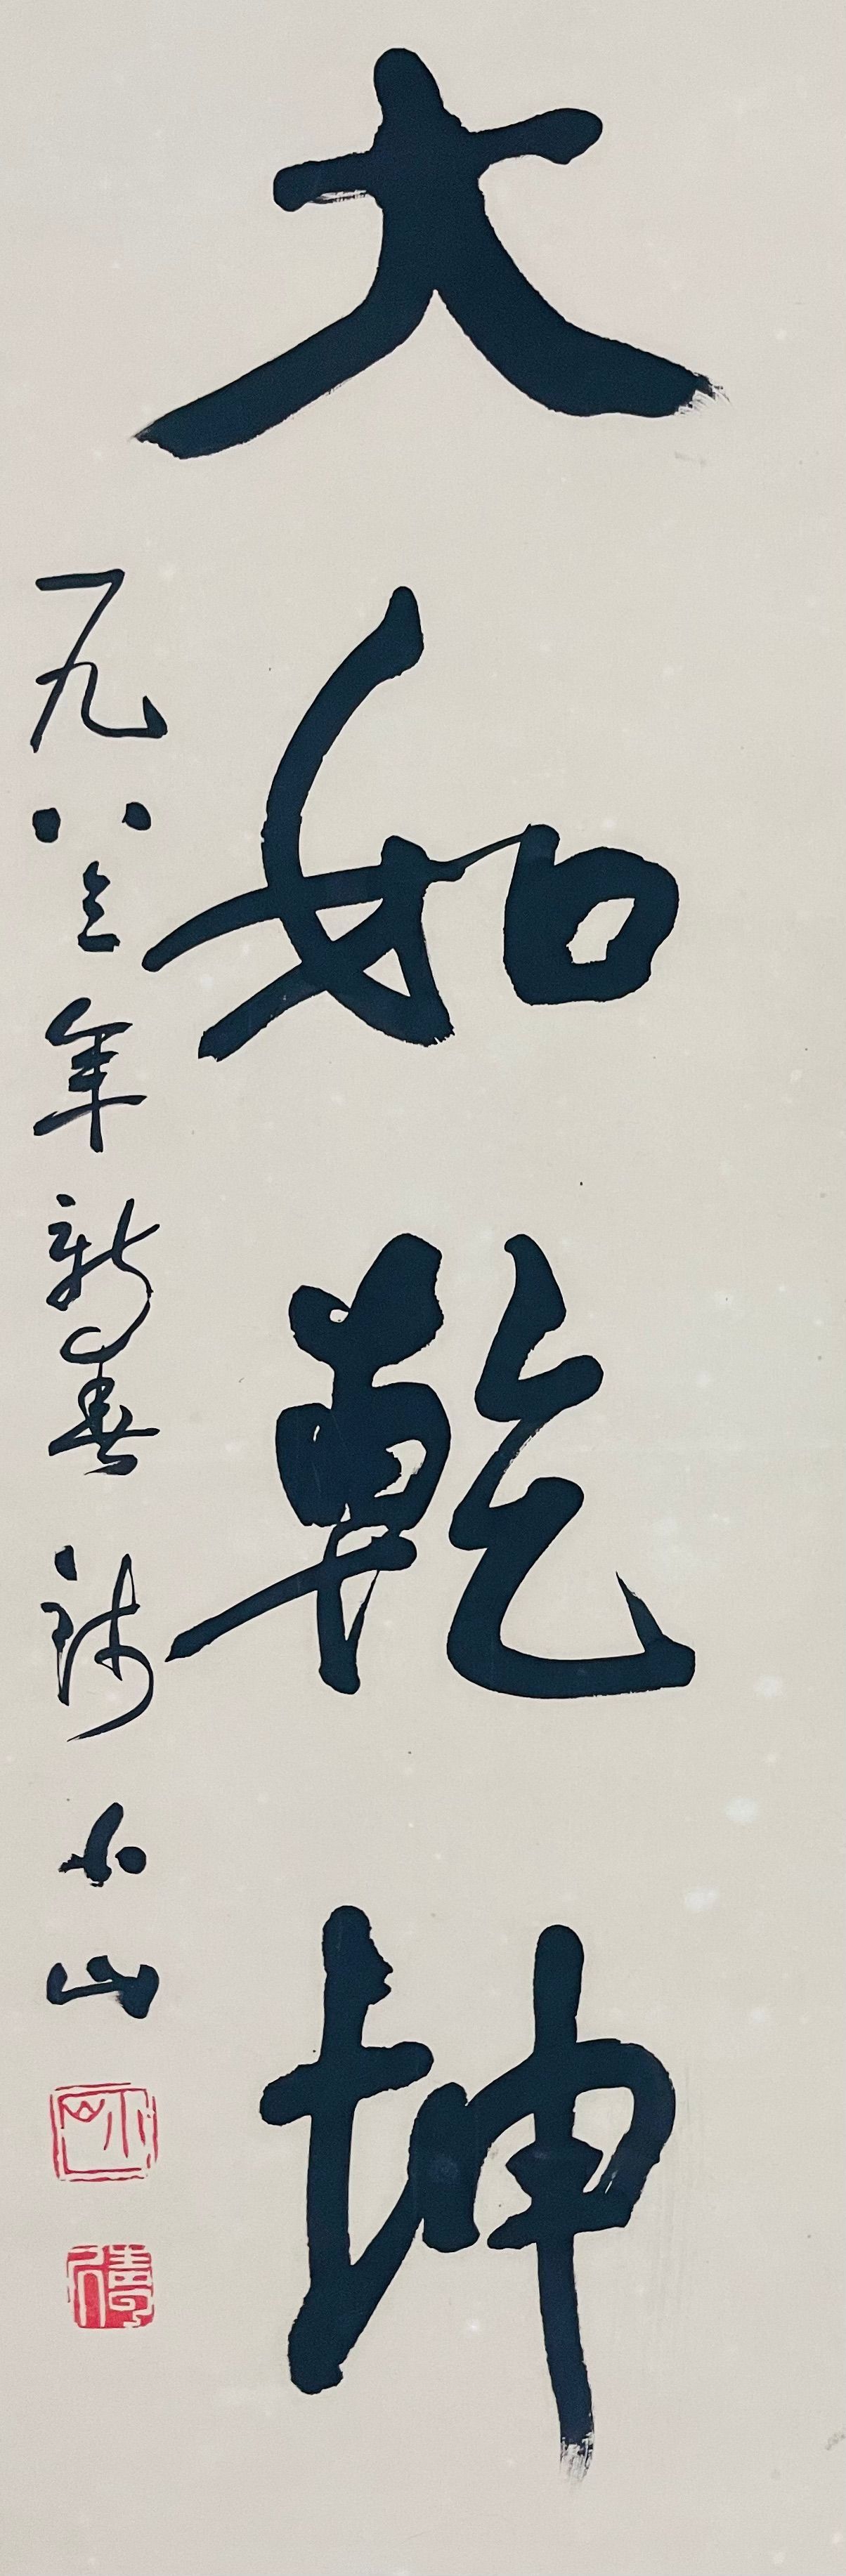 大如乾坤
一九八三年新春 錦小山